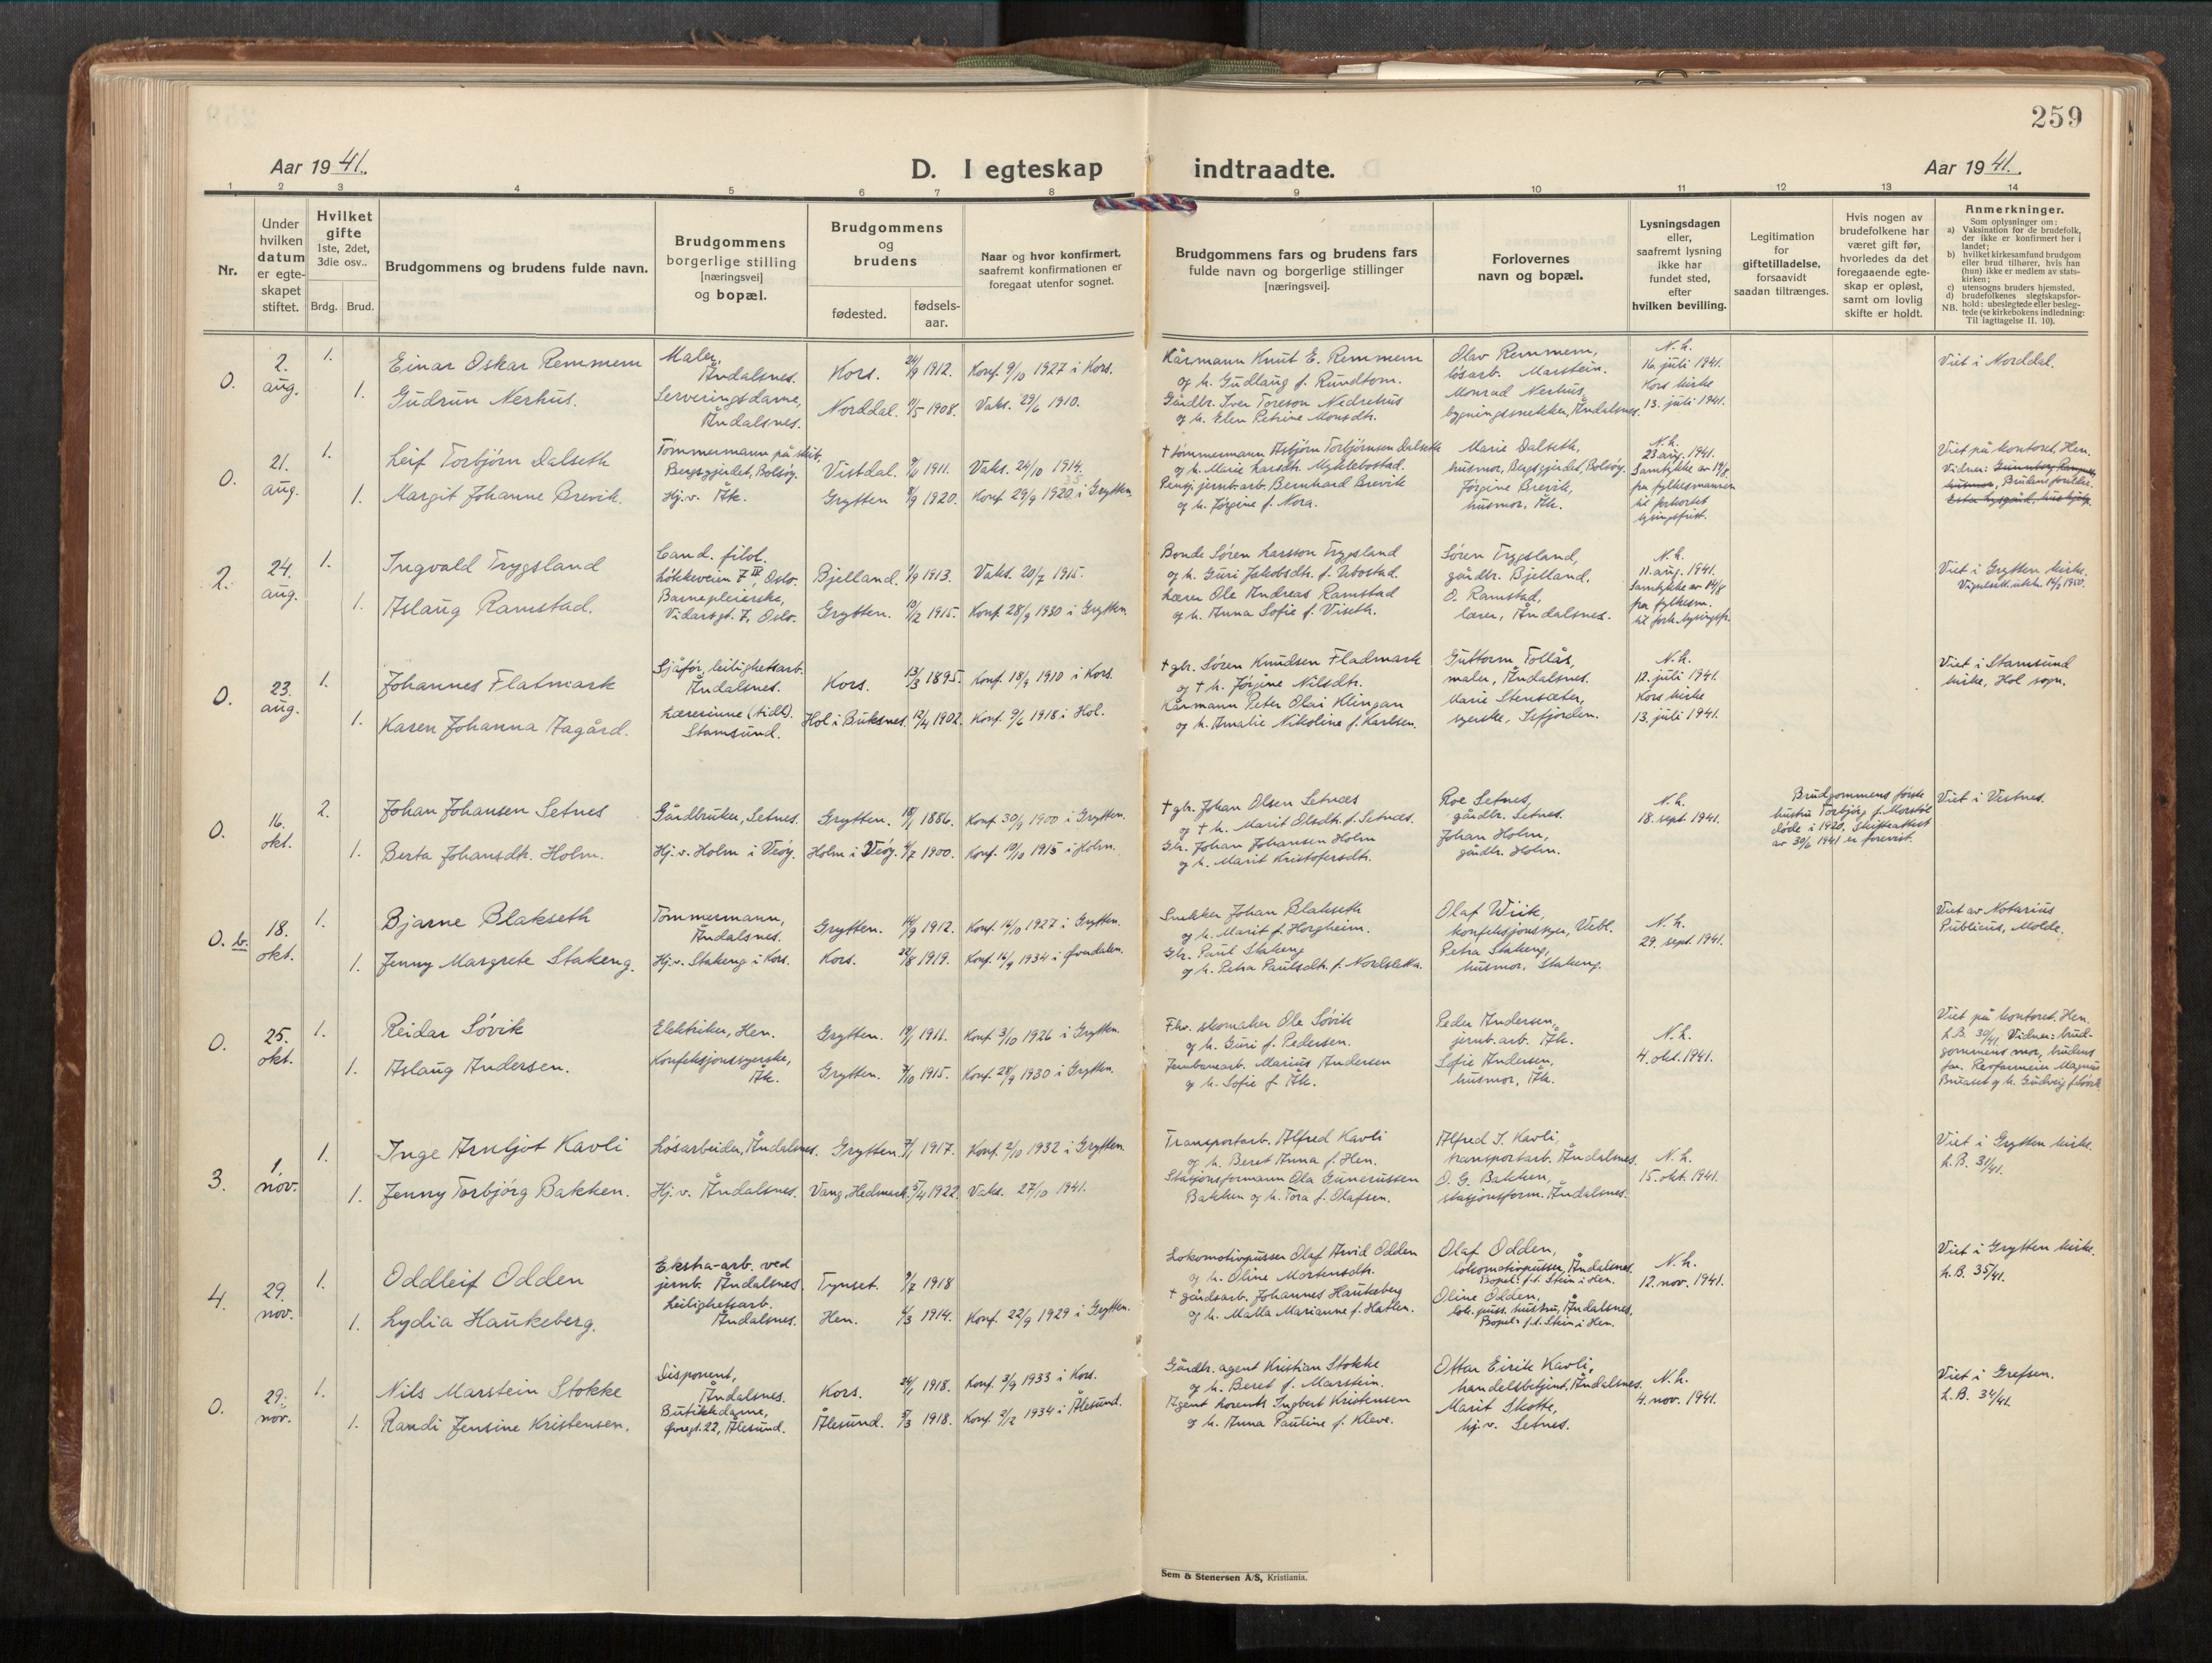 259
Aar 1941.
D. I egteskap indtraadte.
Aar 1941.
1 2 3 4 5 6 7 8 9 10 11 12 13 14
Nr.
Under
hvilken
datum
er egte-
skapet
stiftet.
Hvilket
gifte
1ste, 2det,
3die osv..
Brdg. Brud.
Brudgommens og brudens fulde navn.
Brudgommens
borgerlige stilling
[næringsvei]
og bopæl.
Brudgommens
og
brudens
fødested.
fødsels-
aar.
Naar og hvor konfirmert,
saafremt konfirmationen er
foregaat utenfor sognet.
Brudgommens fars og brudens fars
fulde navn og borgerlige stillinger
[næringsvei].
Forlovernes
navn og bopæl.
Lysningsdagen
eller,
saafremt lysning
ikke har
fundet sted,
efter
hvilken bevilling.
Legitimation
for
giftetilladelse,
forsaavidt
saadan tiltrænges.
Hvis nogen av
brudefolkene har
været gift før,
hvorledes da det
foregaaende egte-
skap er opløst,
samt om lovlig
skifte er holdt.
Anmerkninger.
Som oplysninger om:
a) Vaksination for de brudefolk,
der ikke er konfirmert her i
landet;
b) hvilket kirkesamfund brudgom
eller brud tilhører, hvis han
(hun) ikke er medlem av stats-
kirken;
c) utensogns bruders hjemsted.
d) brudefolkenes slegtskapsfor-
hold: ubeslegtede eller besleg-
NB. tede (se kirkebokens indledning:
Til Iagttagelse II. 10).
0.
2.
aug.
1.
1.
Einar Oskar Remmem
Gudrun Nerhus.
Maler,
Åndalsnes.
Serveringsdame,
Åndalsnes.
Kors. 24/9 1912. Konf. 9/10 1927 i Kors.
Norddal. 9/5 1908. Vaks. 29/6 1910.
Kårmann Knut E. Remmem
og h. Gudlaug f. Rundtom.
Gårdbr. Iver Toreson Nedrehus
og h. Elen Petrine Monsdtr.
Olav Remmem,
løsarb. Marstein.
Monrad Nerhus,
bygningssnekker, Åndalsnes.
N.h.
16. juli 1941.
Kors kirke
13. juli 1941.
Viet i Norddal.
0.
21.
aug.
1.
1.
Leif Torbjørn Dalseth
Margit Johanne Brevik.
Tømmermann på skib.
Bergsgjerdet, Bolsøy.
Hj.v. Åk.
Vistdal. 9/11 1911. Vaks. 24/10 1914.
Grytten 8/9 1920. Konf. 29/9 1920 i Grytten.
35
† tømmermann Asbjørn Torbjørnsen Dalseth
og h. Marie Larsdtr. Myklebostad.
Pensj. jernb.arb. Bernhard Brevik
og h. Jørgine f. Nora.
Marie Dalseth,
husmor, Bergsgjerdet, Bolsøy.
Jørgine Brevik,
husmor, Åk.
N.h.
23 aug. 1941.
Samtykke av 19/8
fra fylkesmannen
til forkortet
lysingsfrist.
Viet på kontoret, Hen.
Vidner:
husmor, Brudens foreldre.
2.
24.
aug.
1.
1.
Ingvald Trygsland
Aslaug Ramstad.
Cand. filol.
Løkkeveien 7 IV, Oslo.
Barnepleierske,
Vidarsgt. 7, Oslo.
Bjelland. 1/9 1913. Vaks. 20/7 1915.
Grytten. 13/2 1915. Konf. 28/9 1930 i Grytten.
Bonde Søren Larsson Trygsland
og h. Guri Jakobsdtr. f. Ubostad.
Lærer Ole Andreas Ramstad
og h. Anna Sofie f. Viseth.
Søren Trygsland,
gårdbr. Bjelland.
O. Ramstad,
lærer, Åndalsnes.
N.h.
11. aug. 1941.
Samtykke av 14/8
fra fylkesm.
til fork. lysingsfr.
Viet i Grytten kirke.
Vigselsatt. utstedt 14/9 1950.
0.
23.
aug.
1.
1.
Johannes Flatmark
Karen Johanna Aagård.
Sjåfør, leilighetsarb.
Åndalsnes.
Lærerinne (tidl.).
Stamsund.
Kors. 13/3 1895. Konf. 18/9 1910 i Kors.
Hol i Buksnes. 12/4 1902. Konf. 9/6 1918 i Hol.
† gbr. Søren Knudsen Fladmark
og † h. Jørgine Nilsdtr.
Kårmann Peter Olai Klingan
og h. Amalie Nikoline f. Karlsen.
Guttorm Tollås,
maler, Åndalsnes.
Marie Stensæter,
syerske, Isfjorden.
N.h.
12. juli 1941.
Kors kirke
13. juli 1941.
Viet i Stamsund
kirke, Hol sogn.
0.
16.
okt.
2.
1.
Johan Johansen Setnes
Berta Johansdtr. Holm.
Gårdbruker, Setnes.
Hj.v. Holm i Veøy.
Grytten. 18/1 1886. Konf. 30/9 1900 i Grytten.
Holm i Veøy. 4/7 1900. Konf. 10/10 1915 i Holm.
† gbr. Johan Olsen Setnæs
og † h. Marit Olsdtr. f. Setnæs.
Gbr. Johan Johansen Holm
og h. Marit Kristofersdtr.
Roe Setnes,
gårdbr. Setnes.
Johan Holm,
gårdbr. Holm.
N.h.
18. sept. 1941.
Brudgommens første
hustru Torbjørg f. Morstøl
døde i 1920. Skifteattest
av 30/6 1941 er forevist.
Viet i Vestnes.
0. b.
18.
okt.
1.
1.
Bjarne Blakseth
Jenny Margrete Stakeng.
Tømmermann,
Åndalsnes.
Hj.v. Stakeng i Kors.
Grytten. 14/9 1912. Konf. 16/10 1927 i Grytten.
Kors. 22/8 1919. Konf. 16/9 1934 i Øverdalen.
Snekker Johan Blakseth
og h. Marit f. Horgheim.
Gbr. Paul Stakeng
og h. Petra Paulsdtr. f. Nordsletta.
Olaf Wiik,
konfeksjonssyer, Vebl.
Petra Stakeng,
husmor, Stakeng.
N.h.
29. sept. 1941.
Viet av Notarius
Publicus, Molde.
0.
25.
okt.
1.
1.
Reidar Søvik
Aslaug Andersen.
Elektriker, Hen.
Konfeksjonssyerske,
Åk.
Grytten. 19/1 1911. Konf. 3/10 1926 i Grytten.
Grytten. 7/10 1915. Konf. 28/9 1930 i Grytten.
Fhv. skomaker Ole Søvik
og h. Guri f. Pedersen.
Jernbanearb. Marius Andersen
og h. Sofie f. Åk.
Peder Andersen,
jernb.arb. Åk.
Sofie Andersen,
husmor, Åk.
N.h.
4. okt. 1941.
Viet på kontoret. Hen.
L.B. 30/41. Vidner: brud-
gommens mor, brudens
far, Magnus
Bruaset og h. Gudveig f. Søvik
3.
1.
nov.
1.
1.
Inge Arntljot Kavli
Jenny Torbjørg Bakken.
Løsarbeider, Åndalsnes.
Hj.v. Åndalsnes.
Grytten. 7/1 1917. Konf. 2/10 1932 i Grytten.
Vang, Hedmark. 5/4 1922. Vaks. 27/10 1941.
Transportarb. Alfred Kavli
og h. Beret Anna f. Hen.
Stasjonsformann Ola Gunerussen
Bakken og h. Tora f. Olafsen.
Alfred J. Kavli,
transportarb. Åndalsnes.
O. G. Bakken,
stasjonsform. Åndalsnes.
N.h.
15. okt. 1941.
Viet i Grytten kirke.
L.B. 31/41.
4.
29.
nov.
1.
1.
Oddleif Odden
Lydia Haukeberg.
Ekstra-arb. ved
jernb. Åndalsnes.
Leilighetsarb.
Åndalsnes.
Tynset. 9/7 1918
Hen. 6/3 1914. Konf. 22/9 1929 i Grytten.
Lokomotivpusser Olaf Arvid Odden
og h. Oline Mortensdtr.
† gårdsarb. Johannes Haukeberg
og h. Malla Marianne f. Hatlen.
Olaf Odden,
lokomotivpusser, Åndalsnes.
Bopel: f.t. Stein i Hen.
Oline Odden,
lok.puss. hustru, Åndalsnes.
Bopel: f.t. Stein i Hen.
N.h.
12. nov. 1941.
Viet i Grytten kirke.
L.B. 35/41.
0.
29.
nov.
1.
1.
Nils Marstein Stokke
Randi Jensine Kristensen.
Disponent,
Åndalsnes.
Butikkdame,
Øvregt. 22, Ålesund.
Kors. 24/1 1918. Konf. 3/9 1933 i Kors.
Ålesund. 5/3 1918. Konf. 2/2 1934 i Ålesund.
Gårdbr. agent Kristian Stokke
og h. Beret f. Marstein.
Agent Lorents Ingbert Kristensen
og h. Anna Pauline f. Kleve.
Ottar Eirik Kavli,
handelsbetjent, Åndalsnes.
Marit Skotte,
hj.v. Setnes.
N.h.
4. nov. 1941.
Viet i Grefsen.
L.B. 34/41.
Sem & Stenersen A/S, Kristiania.